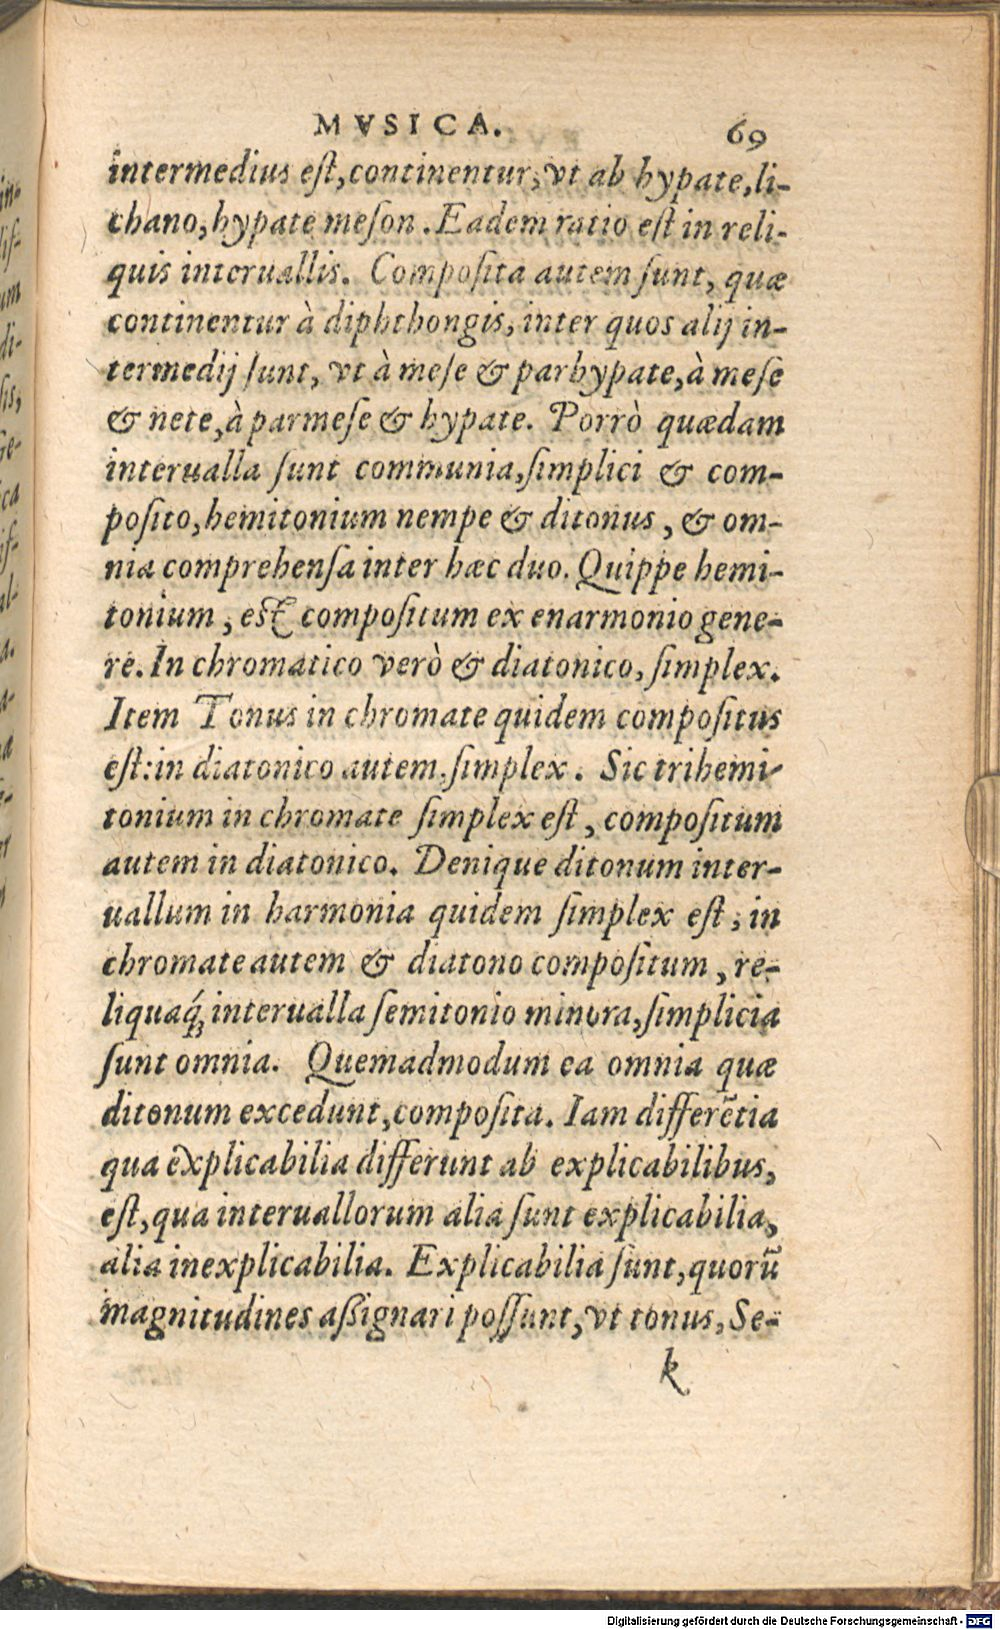 MVSICA. 69
intermedius eſt, continentur, vt ab hypate, li-
chano, hypate meſon. Eadem ratio eſt in reli-
quis interuallis. Compoſita autem ſunt, quæ
continentur à diphthongis, inter quos alij in-
termedij ſunt, vt à meſe & parhypate, à meſe
& nete, à parmeſe & hypate. Porrò quædam
interualla ſunt communia, ſimplici & com-
poſito, hemitonium nempe & ditonus, & om-
nia comprehenſa inter hæc duo. Quippe hemi-
tonium, est compoſitum ex enarmonio gene-
re. In chromatico verò & diatonico, ſimplex.
Item Tonus in chromate quidem compoſitus
eſt: in diatonico autem, ſimplex. Sic trihemi-
tonium in chromate ſimplex eſt, compoſitum
autem in diatonico. Denique ditonum inter-
uallum in harmonia quidem ſimplex eſt, in
chromate autem & diatono compoſitum, re-
liquaq́; interualla ſemitonio minora, ſimplicia
ſunt omnia. Quemadmodum ea omnia quæ
ditonum excedunt, compoſita. Iam differẽtia
qua explicabilia differunt ab explicabilibus,
eſt, qua interuallorum alia ſunt explicabilia,
alia inexplicabilia. Explicabilia ſunt, quorũ
magnitudines aßignari poſſunt, vt tonus, Se-
k
Digitalisierung gefördert durch die Deutsche Forschungsgemeinschaft - DFG